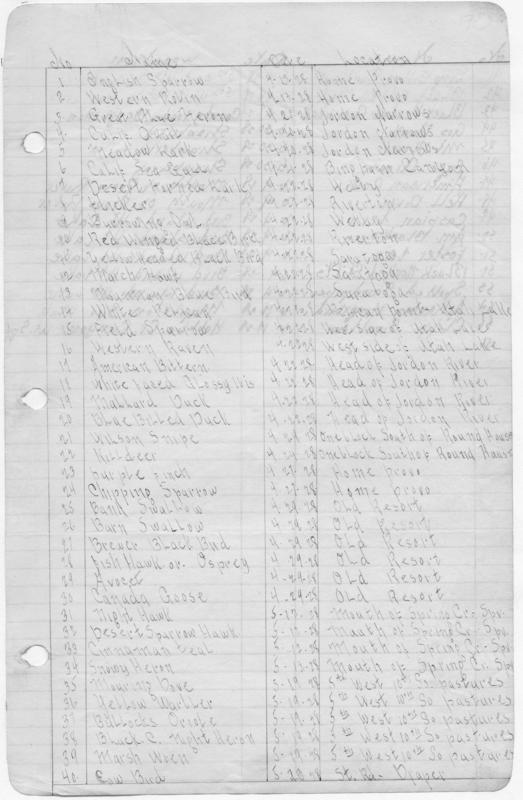 No Name Date Location
1 English Sparrow 4-13-28 Home Provo
2 Western Robin 4-13-28 Home Provo
3 Great Blue Heron 4-22-28 Jordon Narrows
4 Calif. Quail 4-22-28 Jordon Narrows
5 Meadow Lark 4-22-28 Jordon Narrows
6 Calif. Sea Gull 4-22-28 Bingham
7 Desert Horned Lark 4-22-28
8 Flicker 4-22-28 Riverton
9 Burrowing Owl 4-22-28
10 Red Winged Black Bird 4-22-28 Riverton
Yellow Headed Black Bird 4-22-28 Saratoga
12 March Hawk 4-22-28 Saratoga
13 Mountain Blue Bird 4-22-28 Saratoga
14 White Pelican 4-22-28 Pelican Point Utah Lake
15 Sparrow 4-22-28 West side of Utah Lake
16 Western Raven 4-22-28 West side of Utah Lake
17 American Bittern 4-22-28 Head of Jordon River
18 White faced Glossy Ibis 4-22-28 Head of Jordon River
19 Mallard Duck 4-22-28 Head of Jordon River
20 Blue Billed Duck 4-22-28 Head of Jordon River
21 Wilson Snipe 4-24-28 One block South of Round House
22 Killdeer 4-24-28 One block South of Round House
23 Purple Finch 4-27-28 Home Provo
24 Chipping Sparrow 4-27-28 Home Provo
25 Band Swallow 4-29-28 Old Resort
26 Barn Swallow 4-29-28 Old Resort
27 Brewer Black Bird 4-29-28 Old Resort
28 Fish Hawk or Osprey 4-29-28 Old Resort
29 Avocet 4-29-28 Old Resort
30 Canada Goose 4-29-28 Old Resort
31 Night Hawk 5-13-28 Mouth of Spring Cr. Spr.
32 Desert Sparrow Hawk 5-13-28 Mouth of Spring Cr. Spr.
33 Cinnaman Teal 5-13-28 Mouth of Spring Cr. Spr.
34 Snowy Heron 5-13-28 Mouth of Spring Cr. Spr.
35 Mouring Dove 5-19-28 5th West 10th So pastures
36 Yellow Warbler 5-19-28 5th West 10th So pastures
37 Bullocks Oriole 5-19-28 5th West 10th So pastures
38 Black C. Night Heron 5-19-28 5th West 10th So pastures
39 Marsh Wren 5-19-28 5th West 10th So pastures
40 Cow Bird 5-20-28 Draper